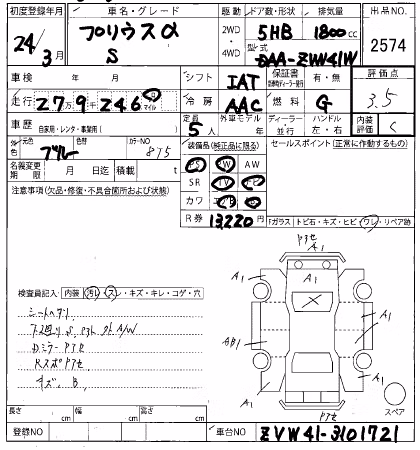 初度登録年月 車名・グレード 駆動 ドア数・形状 排気量 出品NO.
24/3月 プリウスα S 2WD・4WD 5HB 1800cc 2574
型式 DAA-ZVW41W
車検 年 月 シフト IAT 保証書 有・無 評価点 3.5
走行 27万9千246 マイル 冷房 AAC 燃料 G
車歴 自家用・レンタ・事業用( ) 定員 5人 外車モデル 年 ディーラー・並行 ハンドル 左・右 内装評価 C
外色 元色 ブルー 色替 カラーNO 875 装備品(純正品に限る) セールスポイント(正常に動作するもの)
PS PW AW
名義変更期限 月 日迄 積載 t SR TV
注意事項(欠品・修復・不具合箇所および状態) カワ
R券 13,220円 ガラス トビ石・キズ・ヒビ・ワレ・リペア跡
Pアセ
A1
A1 A1
A1
検査員記入 内装 汚レ・スレ・キズ・キレ・コゲ・穴
シートヘタリ
A1
下廻りS
AB1
DミラーPアセ
RスポPアセ
キズ、B
A1 A1
A1
スペア
Pアセ
長さ cm 幅 cm 高さ cm
登録NO 車台NO ZVW41-3101721